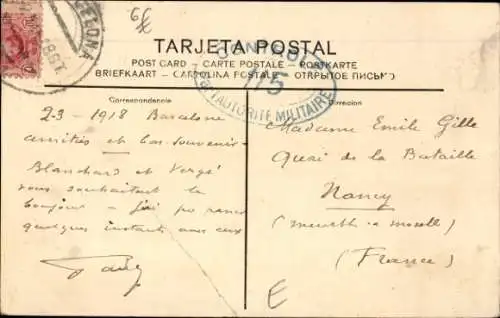 TARJETA POSTAL
POST CARD – CARTE POSTALE – POSTKARTE
BRIEFKAART – CARTOLINA POSTALE – ОТКРЫТОЕ ПИСЬМО
CELONA
115
AUTORITÉ MILITAIRE
Correspondencia
23 - 1918 Barcelone
amitiés et bon souvenir
Blanchard et Vergé
vous souhaitent le
bonjour - j'ai pu
quelques instants avec eux
Madame Emile Gille
Quai de la Bataille
Nancy
(Meurthe & Moselle)
(France)
E